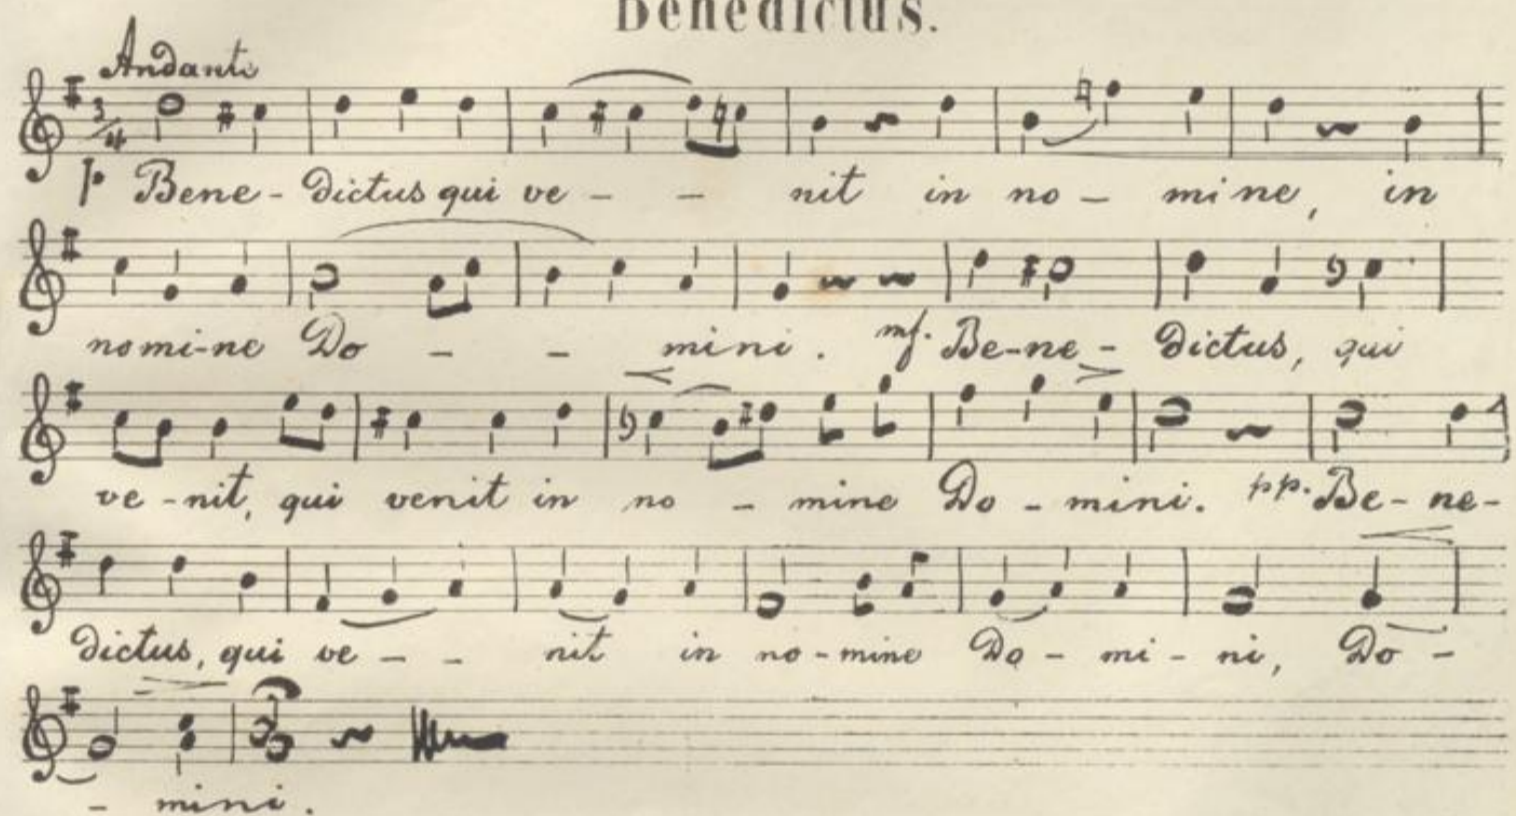 Benedictus.
Andante
3/4
p Bene - dictus qui ve - - nit in no - mine, in
nomi-ne Do - - mini. mf. Be-ne - dictus, qui
ve-nit, qui venit in no - mine Do - mini. pp. Be - ne -
dictus, qui ve - - nit in no-mine Do - mi - ni, Do -
- mini.